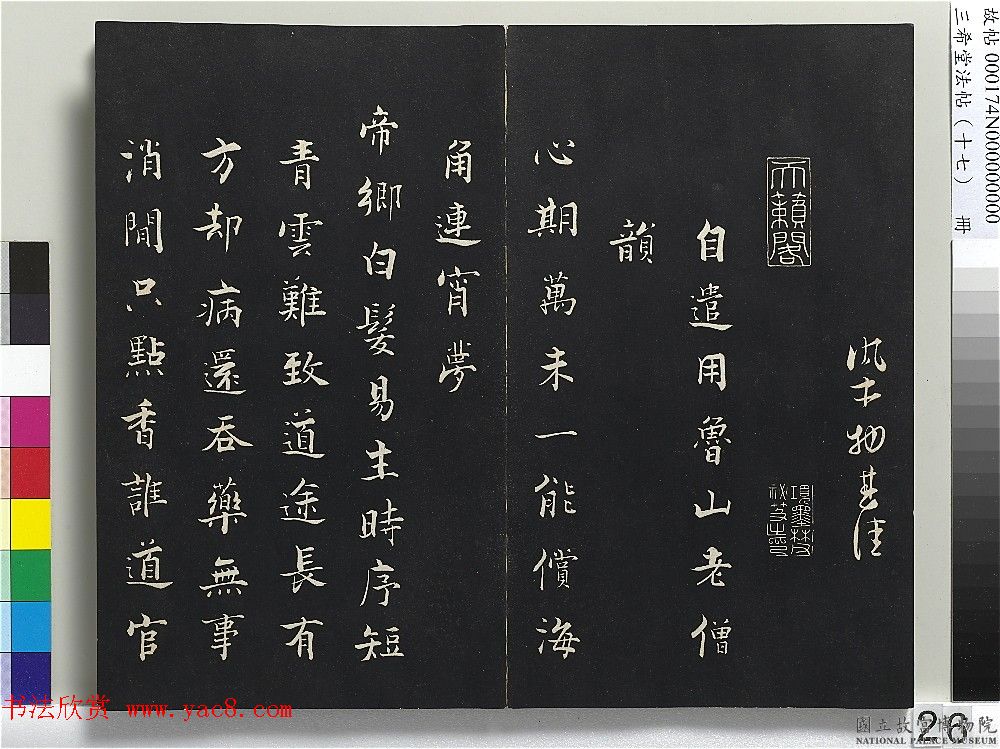 故帖 000174N000000000
三希堂法帖(十七) 冊
天籟閣
自遣用魯山老僧
韻
心期萬未一能償海
角連宵夢
帝鄉白髮易生時序短
青雲難致道途長有
方却病還吞藥無事
消閒只點香誰道官
书法欣赏 www.yac8.com
26
國立故宮博物院
NATIONAL PALACE MUSEUM